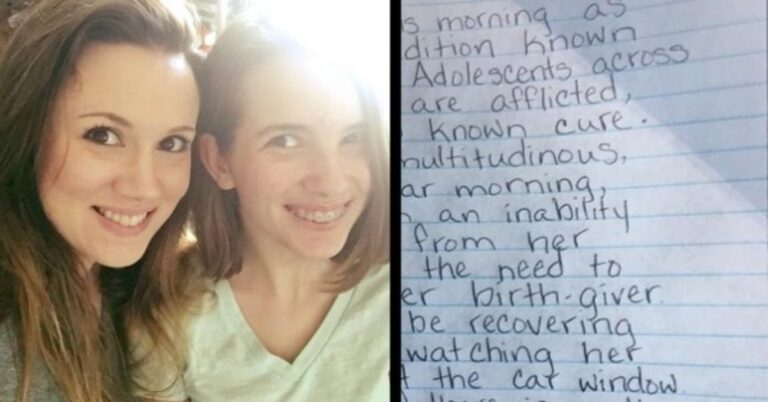 s morning as
dition known
Adolescents across
are afflicted,
known cure.
multitudinous,
ar morning,
an inability
from her
the need to
er birth-giver.
be recovering
watching her
t the car window.